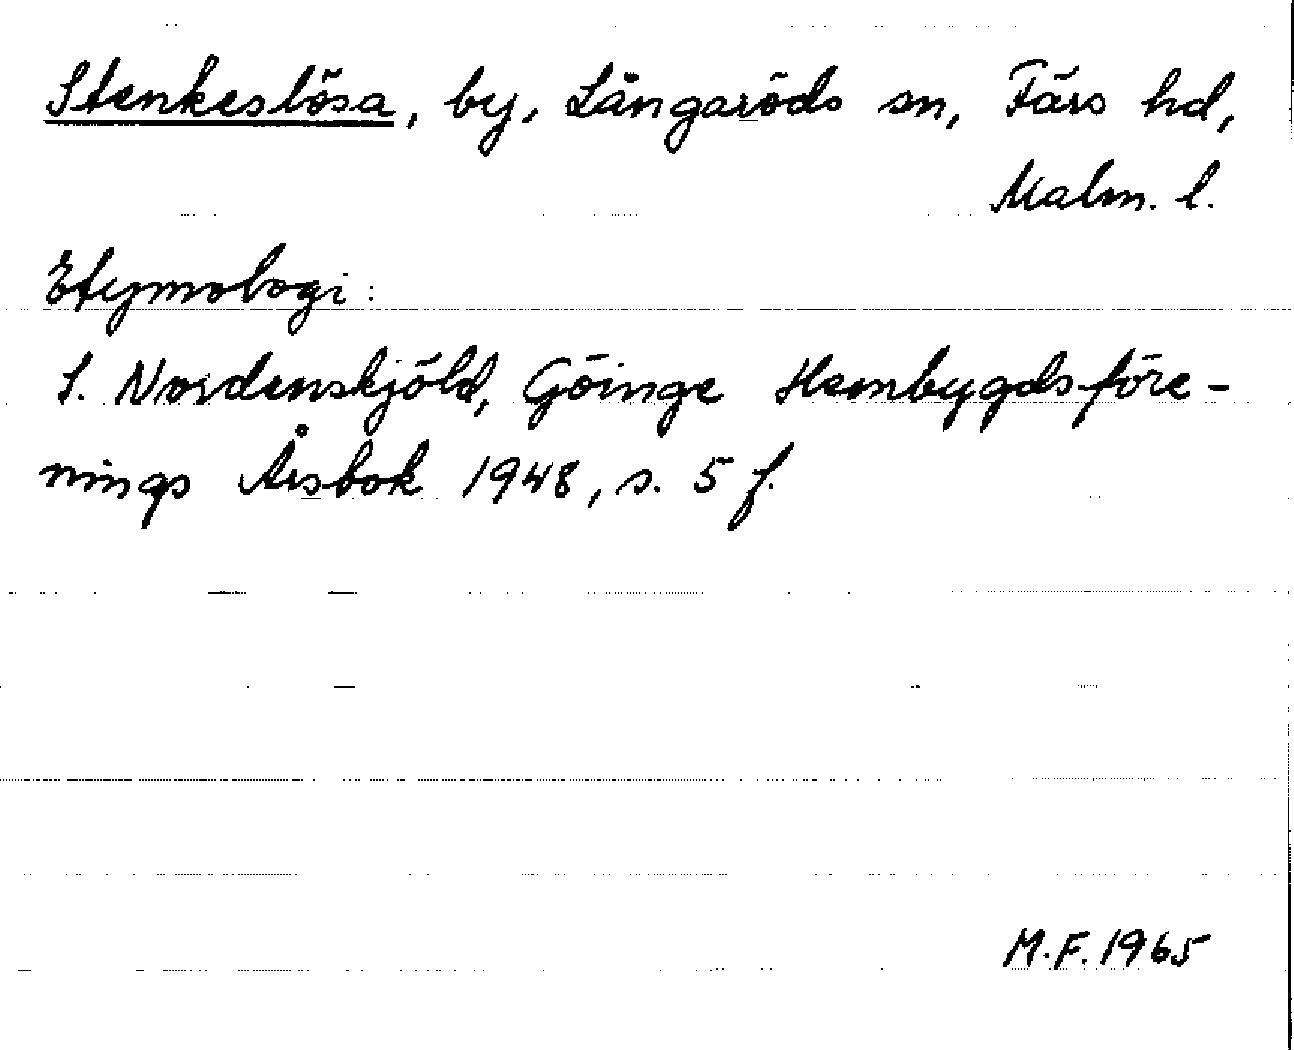 Stenkeslösa, by, Långaröds sn, Färs hd,
Malm. l.
Etymologi:
S. Nordenskjöld, Göinge Hembygdsföre-
nings Årsbok 1948, s. 5 f.
M.F. 1965